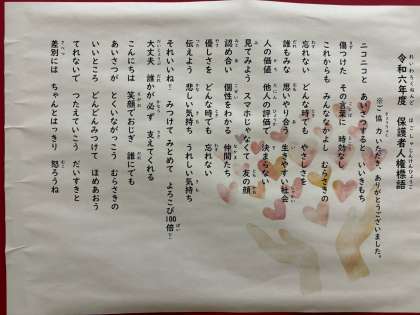 令和六年度 保護者人権標語
※ご協力いただき ありがとうございました。
ニコニコと あいさつすると いいきもち
傷つけた その言葉に 時効なし
これからも みんななかよし むらさきの
忘れない どんな時でも やさしさを
誰もみな 思いやり合う 生きやすい社会
人の価値 他人の評価で 決まらない
見てみよう スマホじゃなくて 友の顔
認め合い 個性をわかる 仲間たち
優しさを どんな時も 忘れない
伝えよう 悲しい気持ち うれしい気持ち
それいいね みつけて みとめて よろこび100倍
大丈夫 誰かが必ず 支えてくれる
こんにちは 笑顔でおじぎ 誰にでも
あいさつが とくいながっこう むらさきの
いいところ どんどんみつけて ほめあおう
てれないで つたえていこう だいすきと
差別には ちゃんとはっきり 怒ろうね